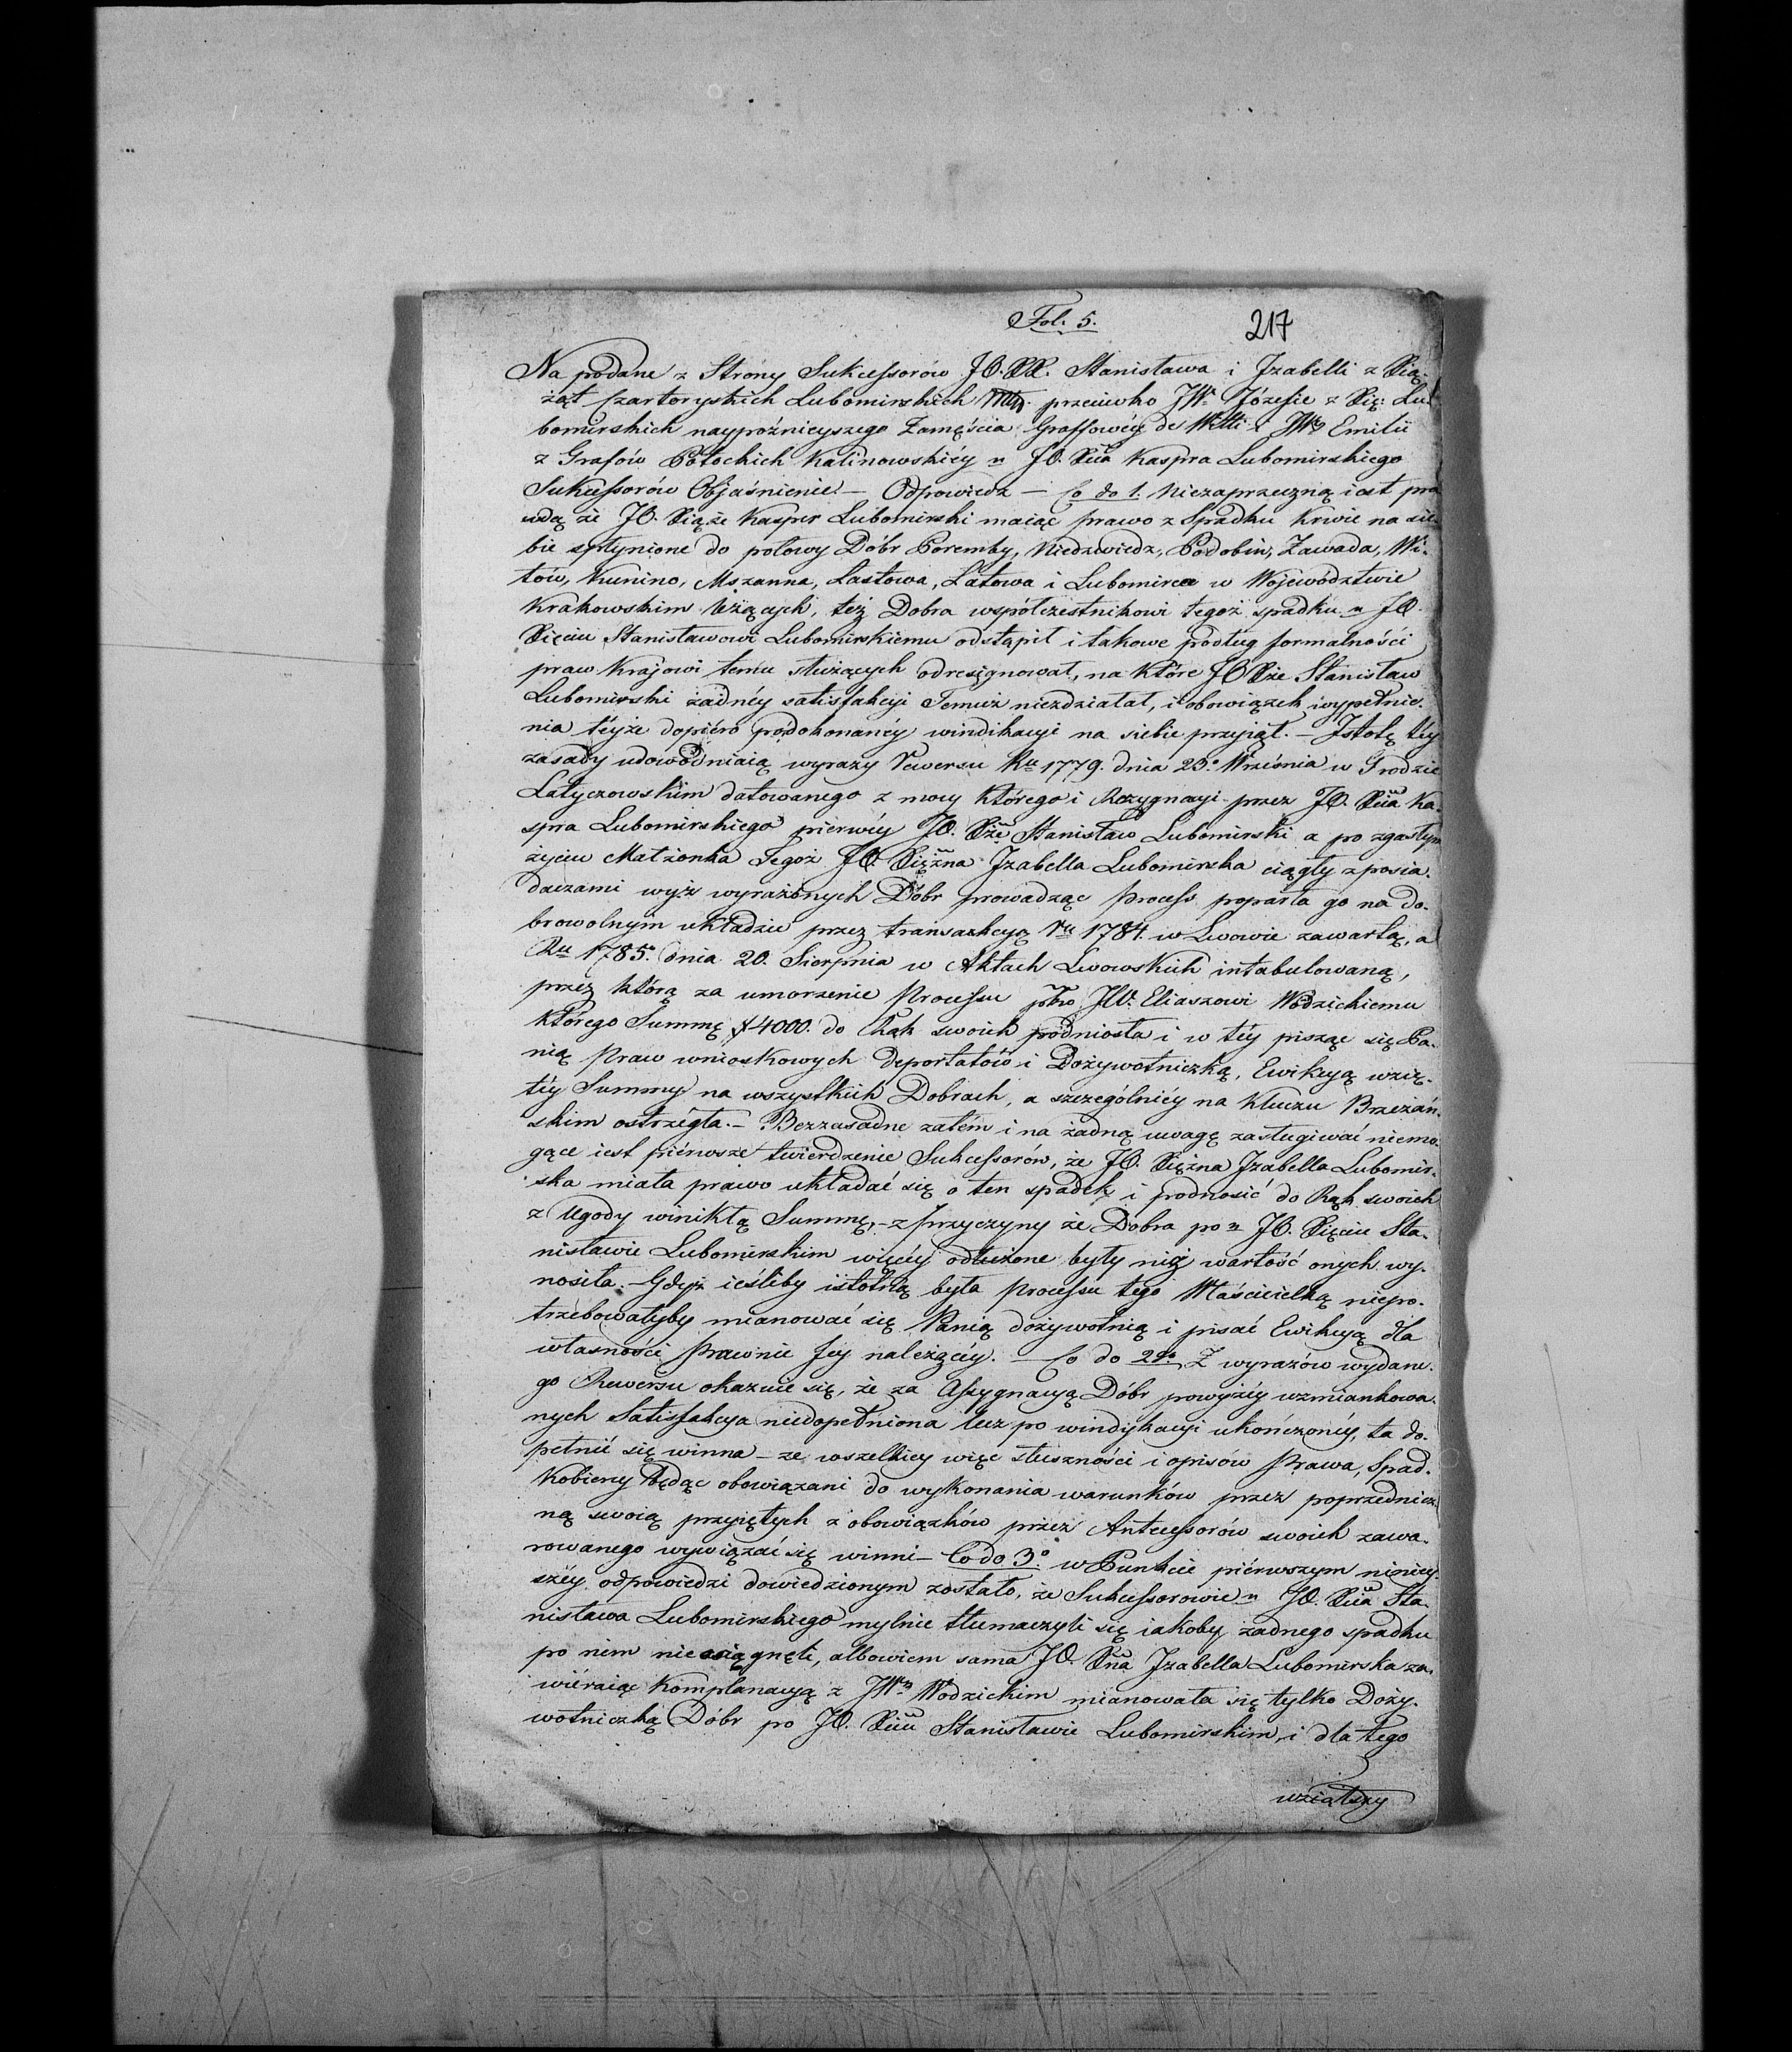 Fol. 5.
217
Na podane z Strony Sukcessorów JO. XX. Stanisława i Izabelli z Xią-
żąt Czartoryskich Lubomirskich przeciwko JW. Józefie z Xią: Lu
bomirskich naypoźnieyszego Zamęścia Graffowéy de Witti i JW. Emilii
z Grafów Potockich Kalinowskiéy n JO. Xcia Kaspra Lubomirskiego
Sukcessorów Objaśnienie. — Odpowiedz — Co do 1. Niezaprzeczną iest pra
wdą że JO. Xiąże Kasper Lubomirski maiąc prawo z Spadku Krwie na sie-
bie spłynione do połowy Dóbr Poremby, Niedzwiedz, Podobin, Zawada, Wi-
tów, Kunino, Mszanna, Łastowa, Łatowa i Lubomirca w Województwie
Krakowskim leżących, też Dobra współczestnikowi tegoż spadku n JO.
Xięciu Stanisławowi Lubomirskiemu odstąpił i takowe podług formalności
praw Krajowi temu służących odresignował, na które JO Xże Stanisław
Lubomirski żadnéy satisfakcyi Temuż niezdziałał, i obowiązek wypełnie-
nia téyże dopiéro podokonanéy windikacyi na siebie przyjął. — Istotę téy
zasady udowodniaią wyrazy Rewersu Ru 1779. dnia 23.o Września w Grodzie
Latyczowskim datowanego z mocy którego i Rezygnacyi przez JO. Xcia Ka-
spra Lubomirskiego pierwéy JO. Xże Stanisław Lubomirski a po zgasłym
życiu Małżonka Tegoż JO. Xiężna Izabella Lubomirska ciągły z posia-
daczami wyż wyrażonych Dóbr prowadząc Process poparła go na do-
browolnym układzie przez transakcyą Ru 1784. w Lwowie zawartą, a
Ru 1785. dnia 20. Sierpnia w Aktach Lwowskich intabulowaną,
przez którą za umorzenie Processu ptko JW. Eliaszowi Wodzickiemu
którego Summę # 4000. do Rąk swoich podniosła i w téy pisząc się Pa-
nią Praw wnioskowych Deportatów i Dożywotniczką, Ewikcyą wzię-
téy Summy na wszystkich Dobrach, a szczególniéy na Kluczu Brzeżań-
skim ostrzégła. — Bezzasadne zatém i na żadną uwagę zasługiwać niemo-
gące iest piérwsze twierdzenie Sukcessorów, że JO. Xiężna Izabella Lubomir-
ska miała prawo układać się o ten spadek i podnosić do Rąk swoich
z Ugody winikłą Summę, – z przyczyny że Dobra po n JO. Xięciu Sta-
nisławie Lubomirskim więcéy odłużone były niż wartość onych wy-
nosiła. – Gdyż ieśliby istotną była Processu tego Właścicielką niepo-
trzebowałyby mianować się Panią dożywotnią i pisać Ewikcyą dla
własności Prawnie Jey należącéy. — Co do 2go Z wyrazów wydane-
go Rewersu okazuie się, że za Assygnacyą Dóbr powyżéy wzmiankowa-
nych Satisfakcya niedopełniona lecz po windykacyi ukończonéy, ta do-
pełnić się winna – ze wszelkiey więc słuszności i opisów Prawa, Spad-
kobiercy będąc obowiązani do wykonania warunków przez poprzednicz
ną swoią przyiętych z obowiązków przez Antecessorów swoich zawa-
rowanego wywiązać się winni – Co do 3.o w Punkcie piérwszym niniey-
széy odpowiedzi dowiedzionym zostało, że Sukcessorowie n JO. Xcia Sta-
nisława Lubomirskiego mylnie tłumaczyli się iakoby żadnego spadku
po nim niesiągneli, albowiem sama JO. Xna Izabella Lubomirska za-
wiéraiąc Komplanacyą z JWm Wodzickim mianowała się tylko Doży-
wotniczką Dóbr po JO. Xciu Stanisławie Lubomirskim, i dla tego
wziąwszy